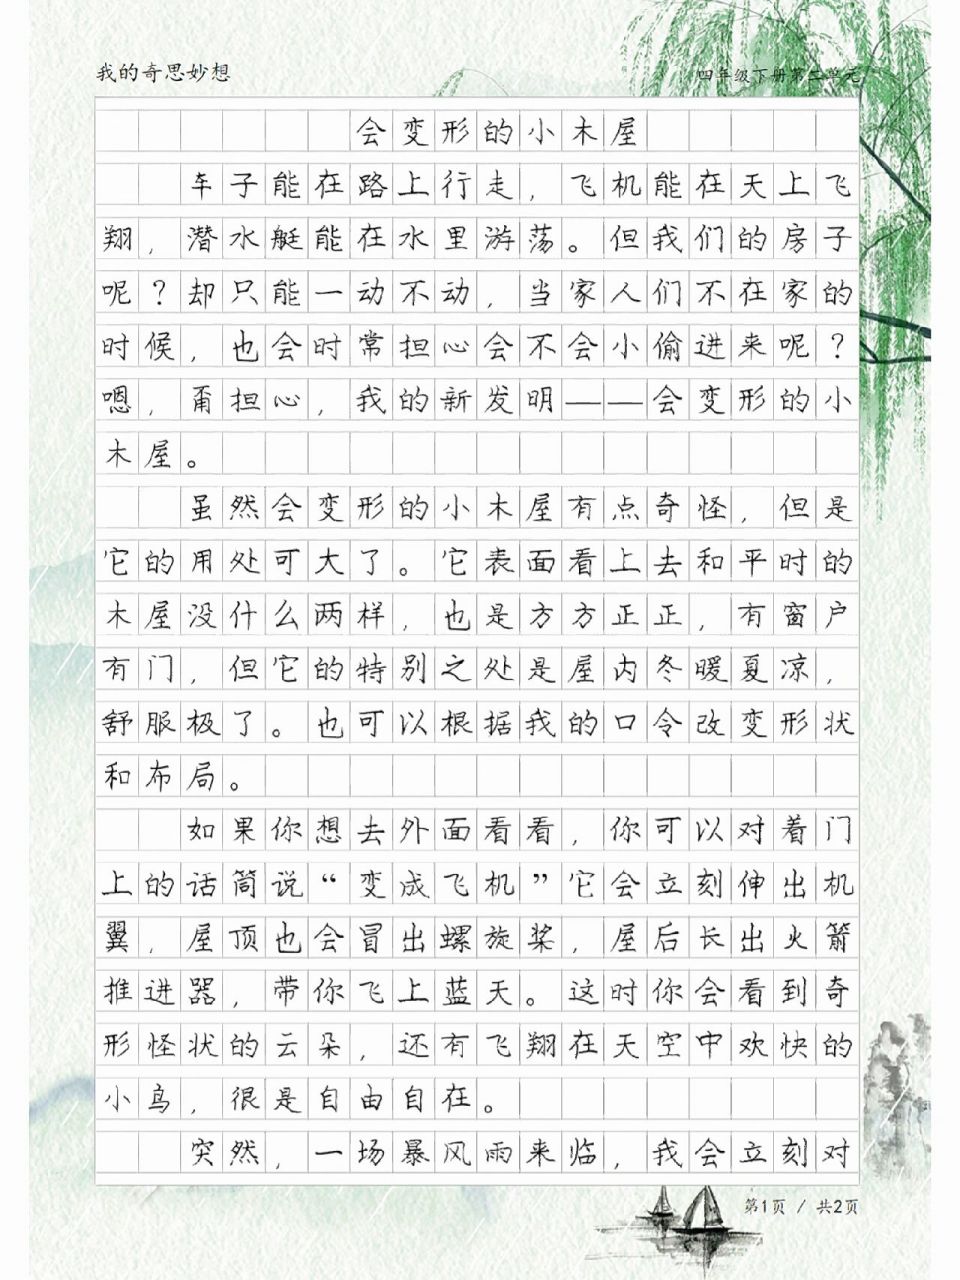 我的奇思妙想
四年级下册第二单元
会变形的小木屋
车子能在路上行走，飞机能在天上飞
翔，潜水艇能在水里游荡。但我们的房子
呢？却只能一动不动，当家人们不在家的
时候，也会时常担心会不会小偷进来呢？
嗯，甭担心，我的新发明——会变形的小
木屋。
虽然会变形的小木屋有点奇怪，但是
它的用处可大了。它表面看上去和平时的
木屋没什么两样，也是方方正正，有窗户
有门，但它的特别之处是屋内冬暖夏凉，
舒服极了。也可以根据我的口令改变形状
和布局。
如果你想去外面看看，你可以对着门
上的话筒说“变成飞机”它会立刻伸出机
翼，屋顶也会冒出螺旋桨，屋后长出火箭
推进器，带你飞上蓝天。这时你会看到奇
形怪状的云朵，还有飞翔在天空中欢快的
小鸟，很是自由自在。
突然，一场暴风雨来临，我会立刻对
第1页 / 共2页